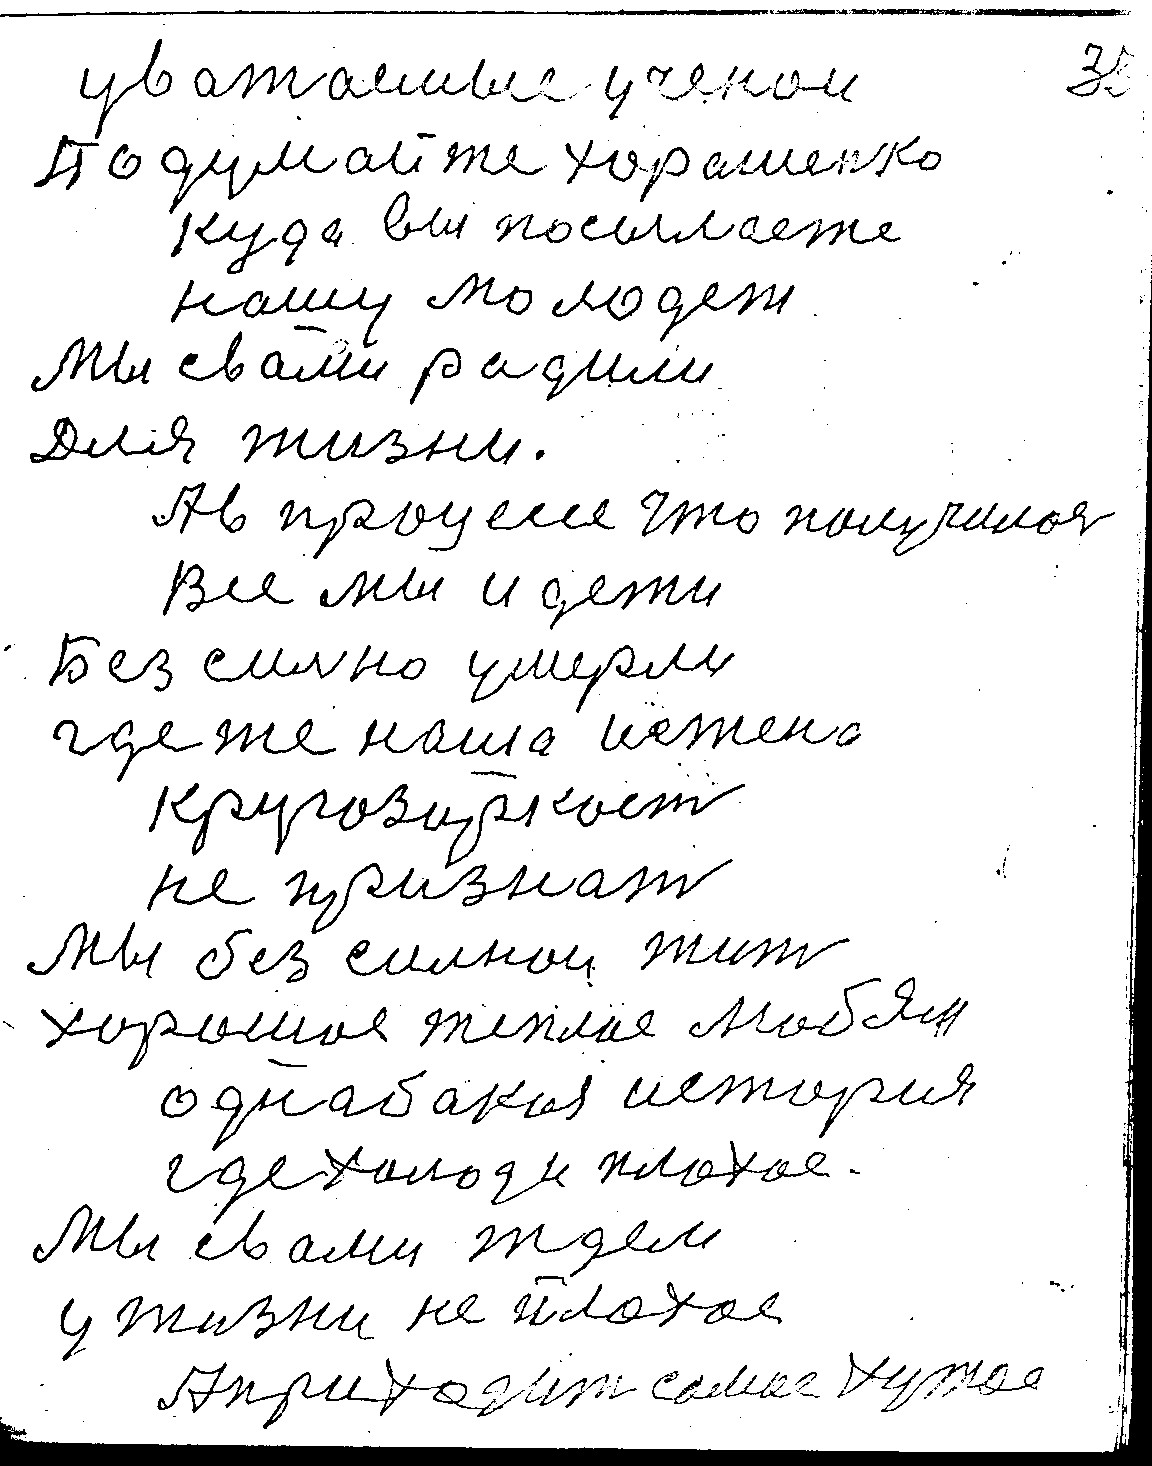 уважаемые ученои
Подумайте хорашенко
куда вы посылаете
нашу молодеж
Мы свами радили
Для жизни.
Ав процесе что получилоя
Все мы и дети
Без силно умерли
где же наша истена
кругозоркост
не признат
Мы без силнои жит
хорошое теплое любям
однабакоя история
где холоди плохое.
Мы свами ждем
у жизни не плохое
Априходит самое хужое